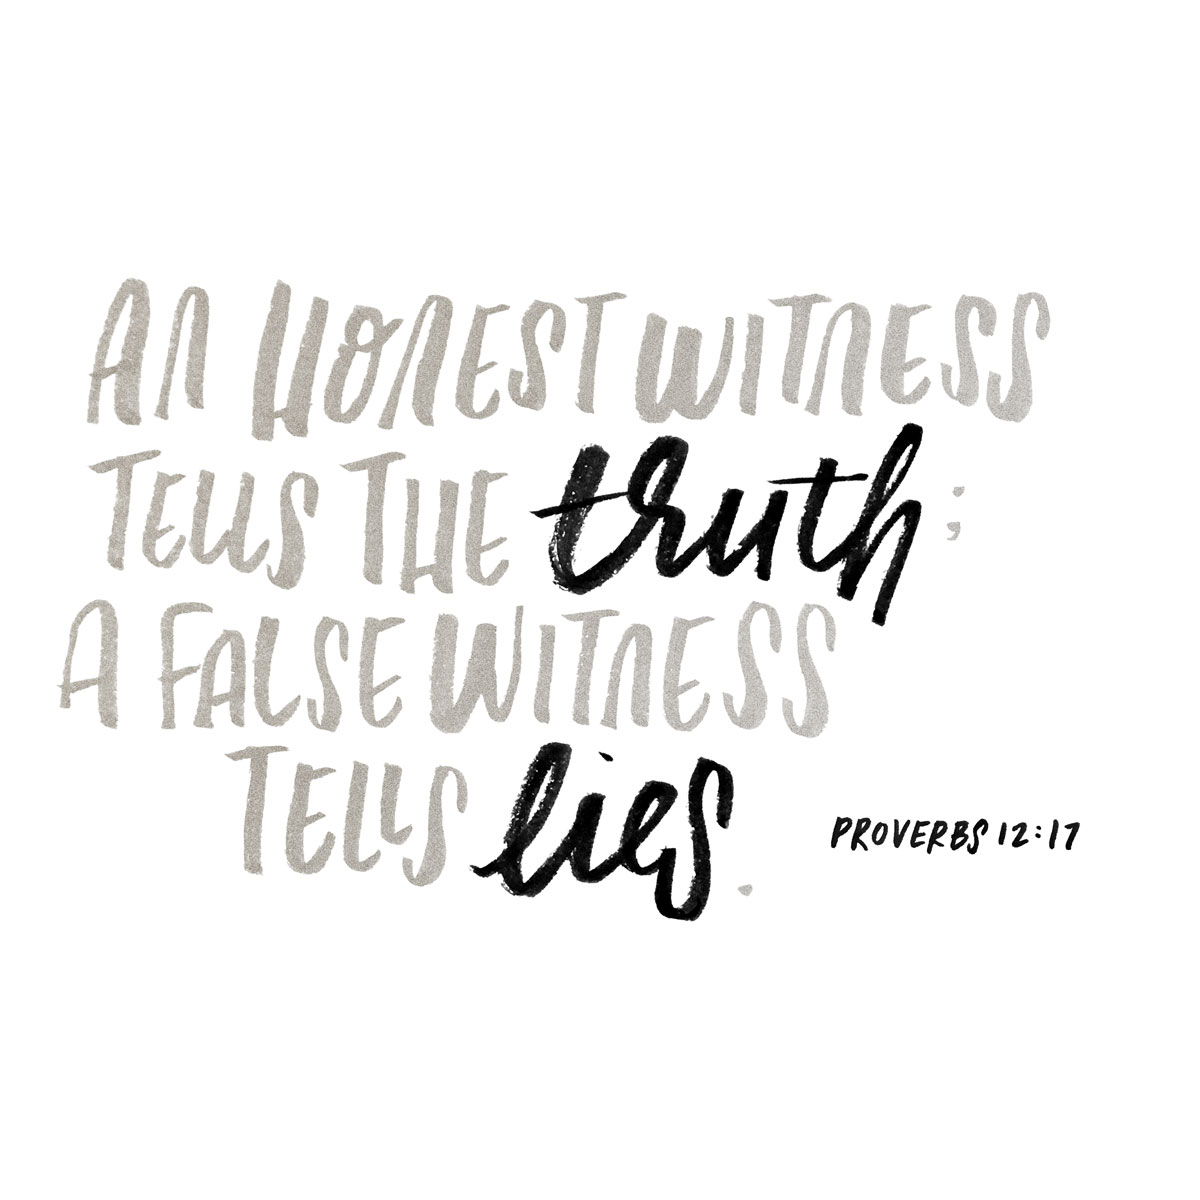 An HonEST WITnESS
TELLS THE truth;
A FALSE WITnESS
TELLS lies.
PROVERBS 12:17